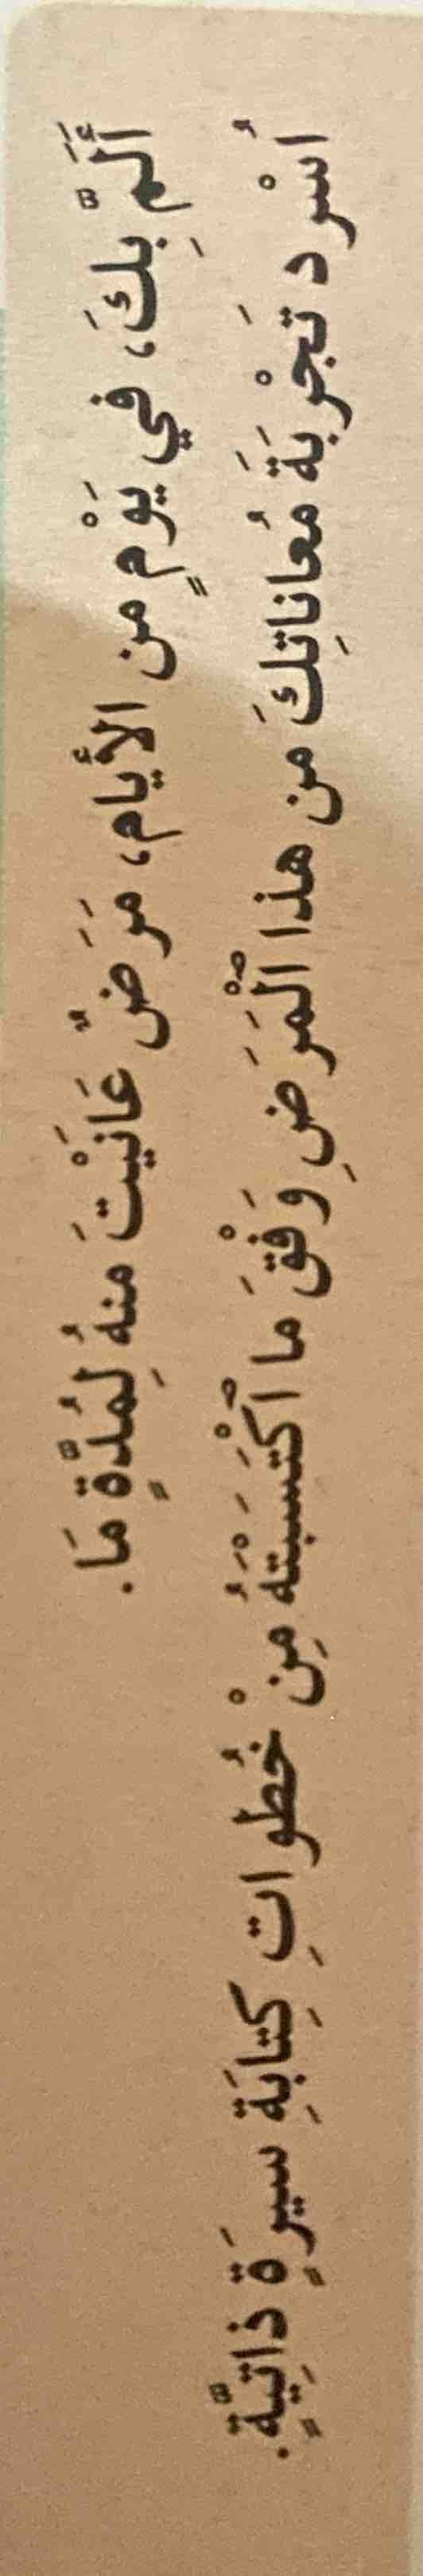 أَلَمَّ بِكَ، في يَوْمٍ من الأيام، مَرَضٌ عَانَيْتَ منهُ لِمُدَّةٍ مَا.
اُسْرد تَجْربَةَ مُعاناتِكَ من هذا ٱلْمَرَضِ وَفْقَ ما ٱكْتَسَبْتَهُ مِنْ خُطواتِ كِتابَةِ سيرَةٍ ذاتِيَّةٍ.